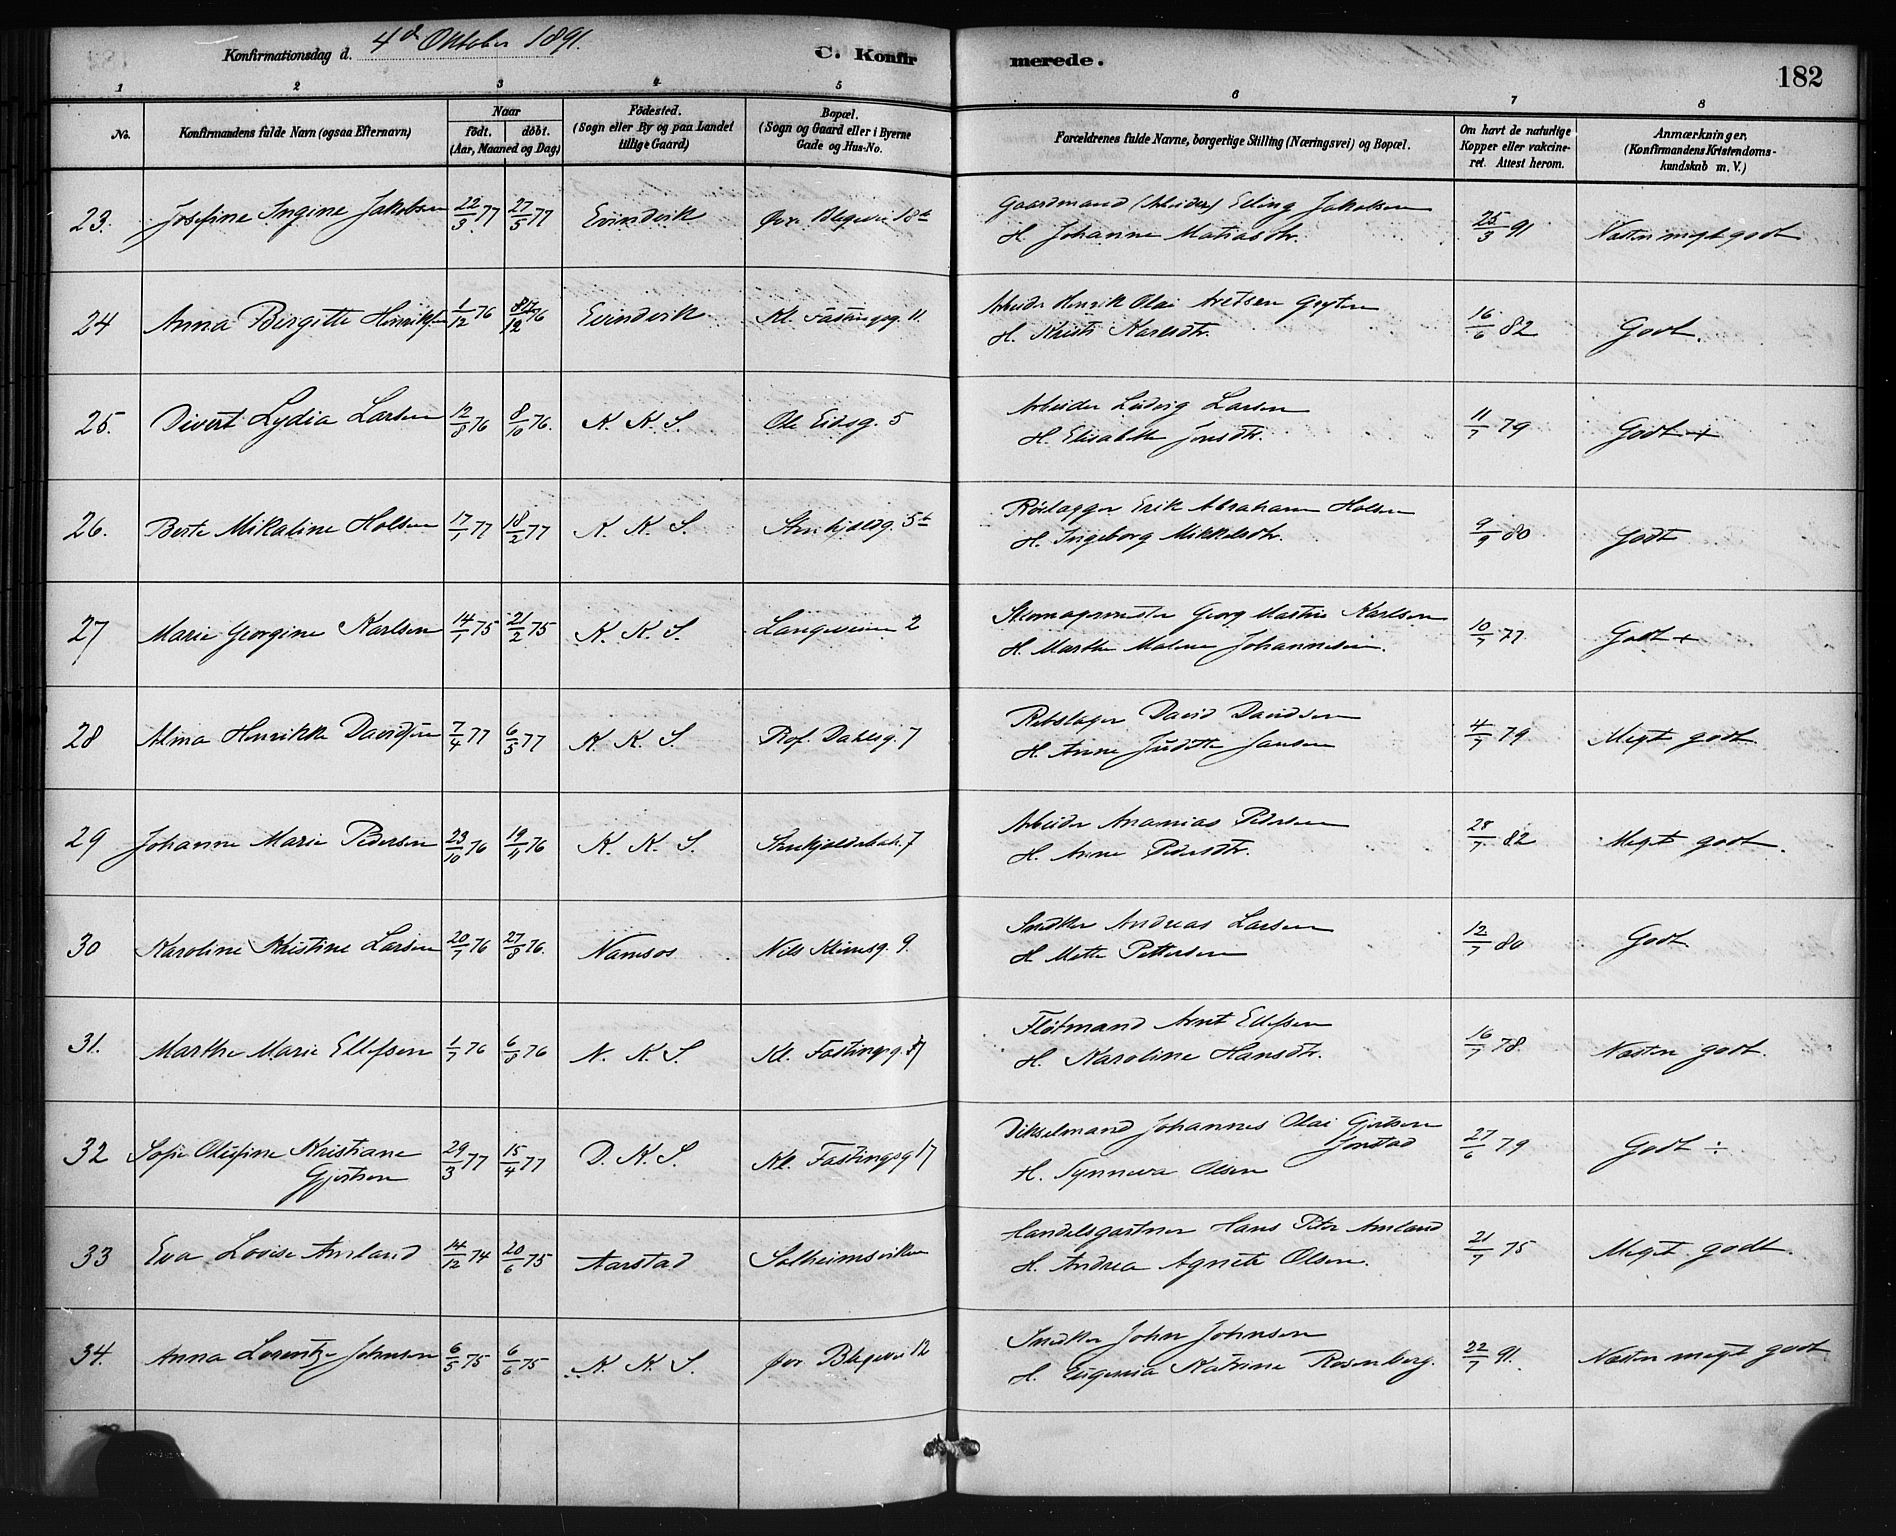 Konfirmationsdag d. 4de Oktober 1891.
C. Konfirmerede.
182
1 2 3 4 5 6 7 8
No.
Konfirmandens fulde Navn (ogsaa Efternavn)
Naar
födt. döbt.
(Aar, Maaned og Dag)
Födested.
(Sogn eller By og paa Landet
tillige Gaard)
Bopæl.
(Sogn og Gaard eller i Byerne
Gade og Hus-No.
Forældrenes fulde Navne, borgerlige Stilling (Næringsvei) og Bopæl.
Om havt de naturlige
Kopper eller vakcine-
ret. Attest herom.
Anmærkninger.
(Konfirmandens Kristendoms-
kundskab m. V.)
23. Josefine Ingine Jakobsen 22/3 77 27/5 77 Evindvik Øvr. Blegevei 18
Gaardmand (Arbeider) Elling Jakobsen
H. Johanne Matiasdtr. 25/3 91 Næsten meget godt
24 Anna Birgitte Henriksen 1/12 76 /12 76 Evindvik Kl. Fastingsg. 11
Arbeider Henrik Olai
H. Kristi 16/6 82 Godt.
25. Sivert Lydia Larsen 12/ 76 8/10 76. K. K. S. Ole Eidsg. 5
Arbeider Ludvig Larsen
H. Elisabeth Jonsdtr. 11/7 79 Godt +
26. Berte Mikaline Holsen 17/1 77 18/2 77 K. K. S. Stenkjeldsg. 5
Erik Abraham Holsen
H. Ingeborg Mikkelsdtr. 9/9 80 Godt
27 Marie Georgine Karlsen 14/1 75 21/2 75 K. K. S. Langeveien 2
Skomagermester Georg Martin Karlsen
H. Marthe Malene Johannesen. 10/7 77 Godt +
28 Alma Henrikke Davidsen 7/4 77 6/5 77 K. K. S. Prof. Dahlsg. 7
Rebslager David Davidsen
H. Anne Judithe Jansen 4/7 79 Meget godt
29 Johanne Marie Pedersen 23/10 76 19/11 76 K. K. S. Stenkjeldsbak. 7
Arbeider Ananias Pedersen
H. Anne Pedersdtr. 28/7 82 Meget godt.
30 Karoline Kristine Larsen 20/7 76 27/8 76. Namsos Nils Klimsg. 9.
Snedker Andreas Larsen
H. Mette Pettersen 12/7 80 Godt
31. Marthe Marie Ellefsen 1/7 76 6/8 76 N. K. S. Kl. Fastingsg. 37
Fløtmand Arnt Ellefsen
H. Karoline Hansdtr. 16/7 78 Næsten godt.
32 Sofie Olufine Kristiane
Gjertsen 29/3 77 15/4 77 D. K. S. Kl. Fastingsg 17
Dikselmand Johannes Olai Gjertsen
Jonstad
H. Synneva Olsen 27/6 79 Godt ÷
33 Eva Lovise Amland 14/12 74 20/6 75 Aarstad Solheimsviken
Handelsgartner Hans Peter Amland
H. Andrea Agnete Olsen. 21/7 75 Meget godt.
34. Anna Lorentze Johnsen 6/5 75 6/6 75 K. K. S. Øvr Blegevei 12
Snedker John Johnsen
H. Eugenia Katrine Rosenberg. 22/7 91. Næsten meget godt